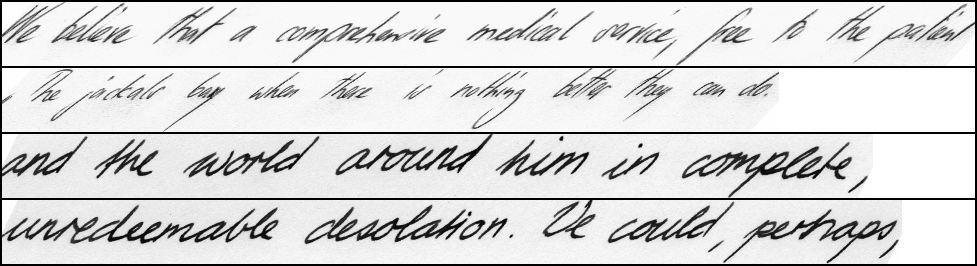 We believe that a comprehensive medical service, free to the patient
" The jackals bay when there is nothing better they can do.
and the world around him in complete,
unredeemable desolation. We could, perhaps,